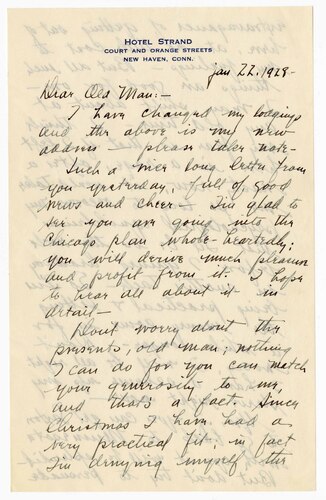 HOTEL STRAND
COURT AND ORANGE STREETS
NEW HAVEN, CONN.
Jan 22, 1928-
Dear Old Man:-
I have changed my lodgings
and the above is my new
address - please take note-
Such a nice long letter from
you yesterday, full of good
news and cheer - I'm glad to
see you are going into the
Chicago plan whole-heartedly;
you will derive much pleasure
and profit from it. I hope
to hear all about it in
detail-
Don't worry about the
presents, old man; nothing
I can do for you can match
your generosity to me,
and that's a fact. Since
Christmas I have had a
very practical fit; in fact
I'm denying myself the